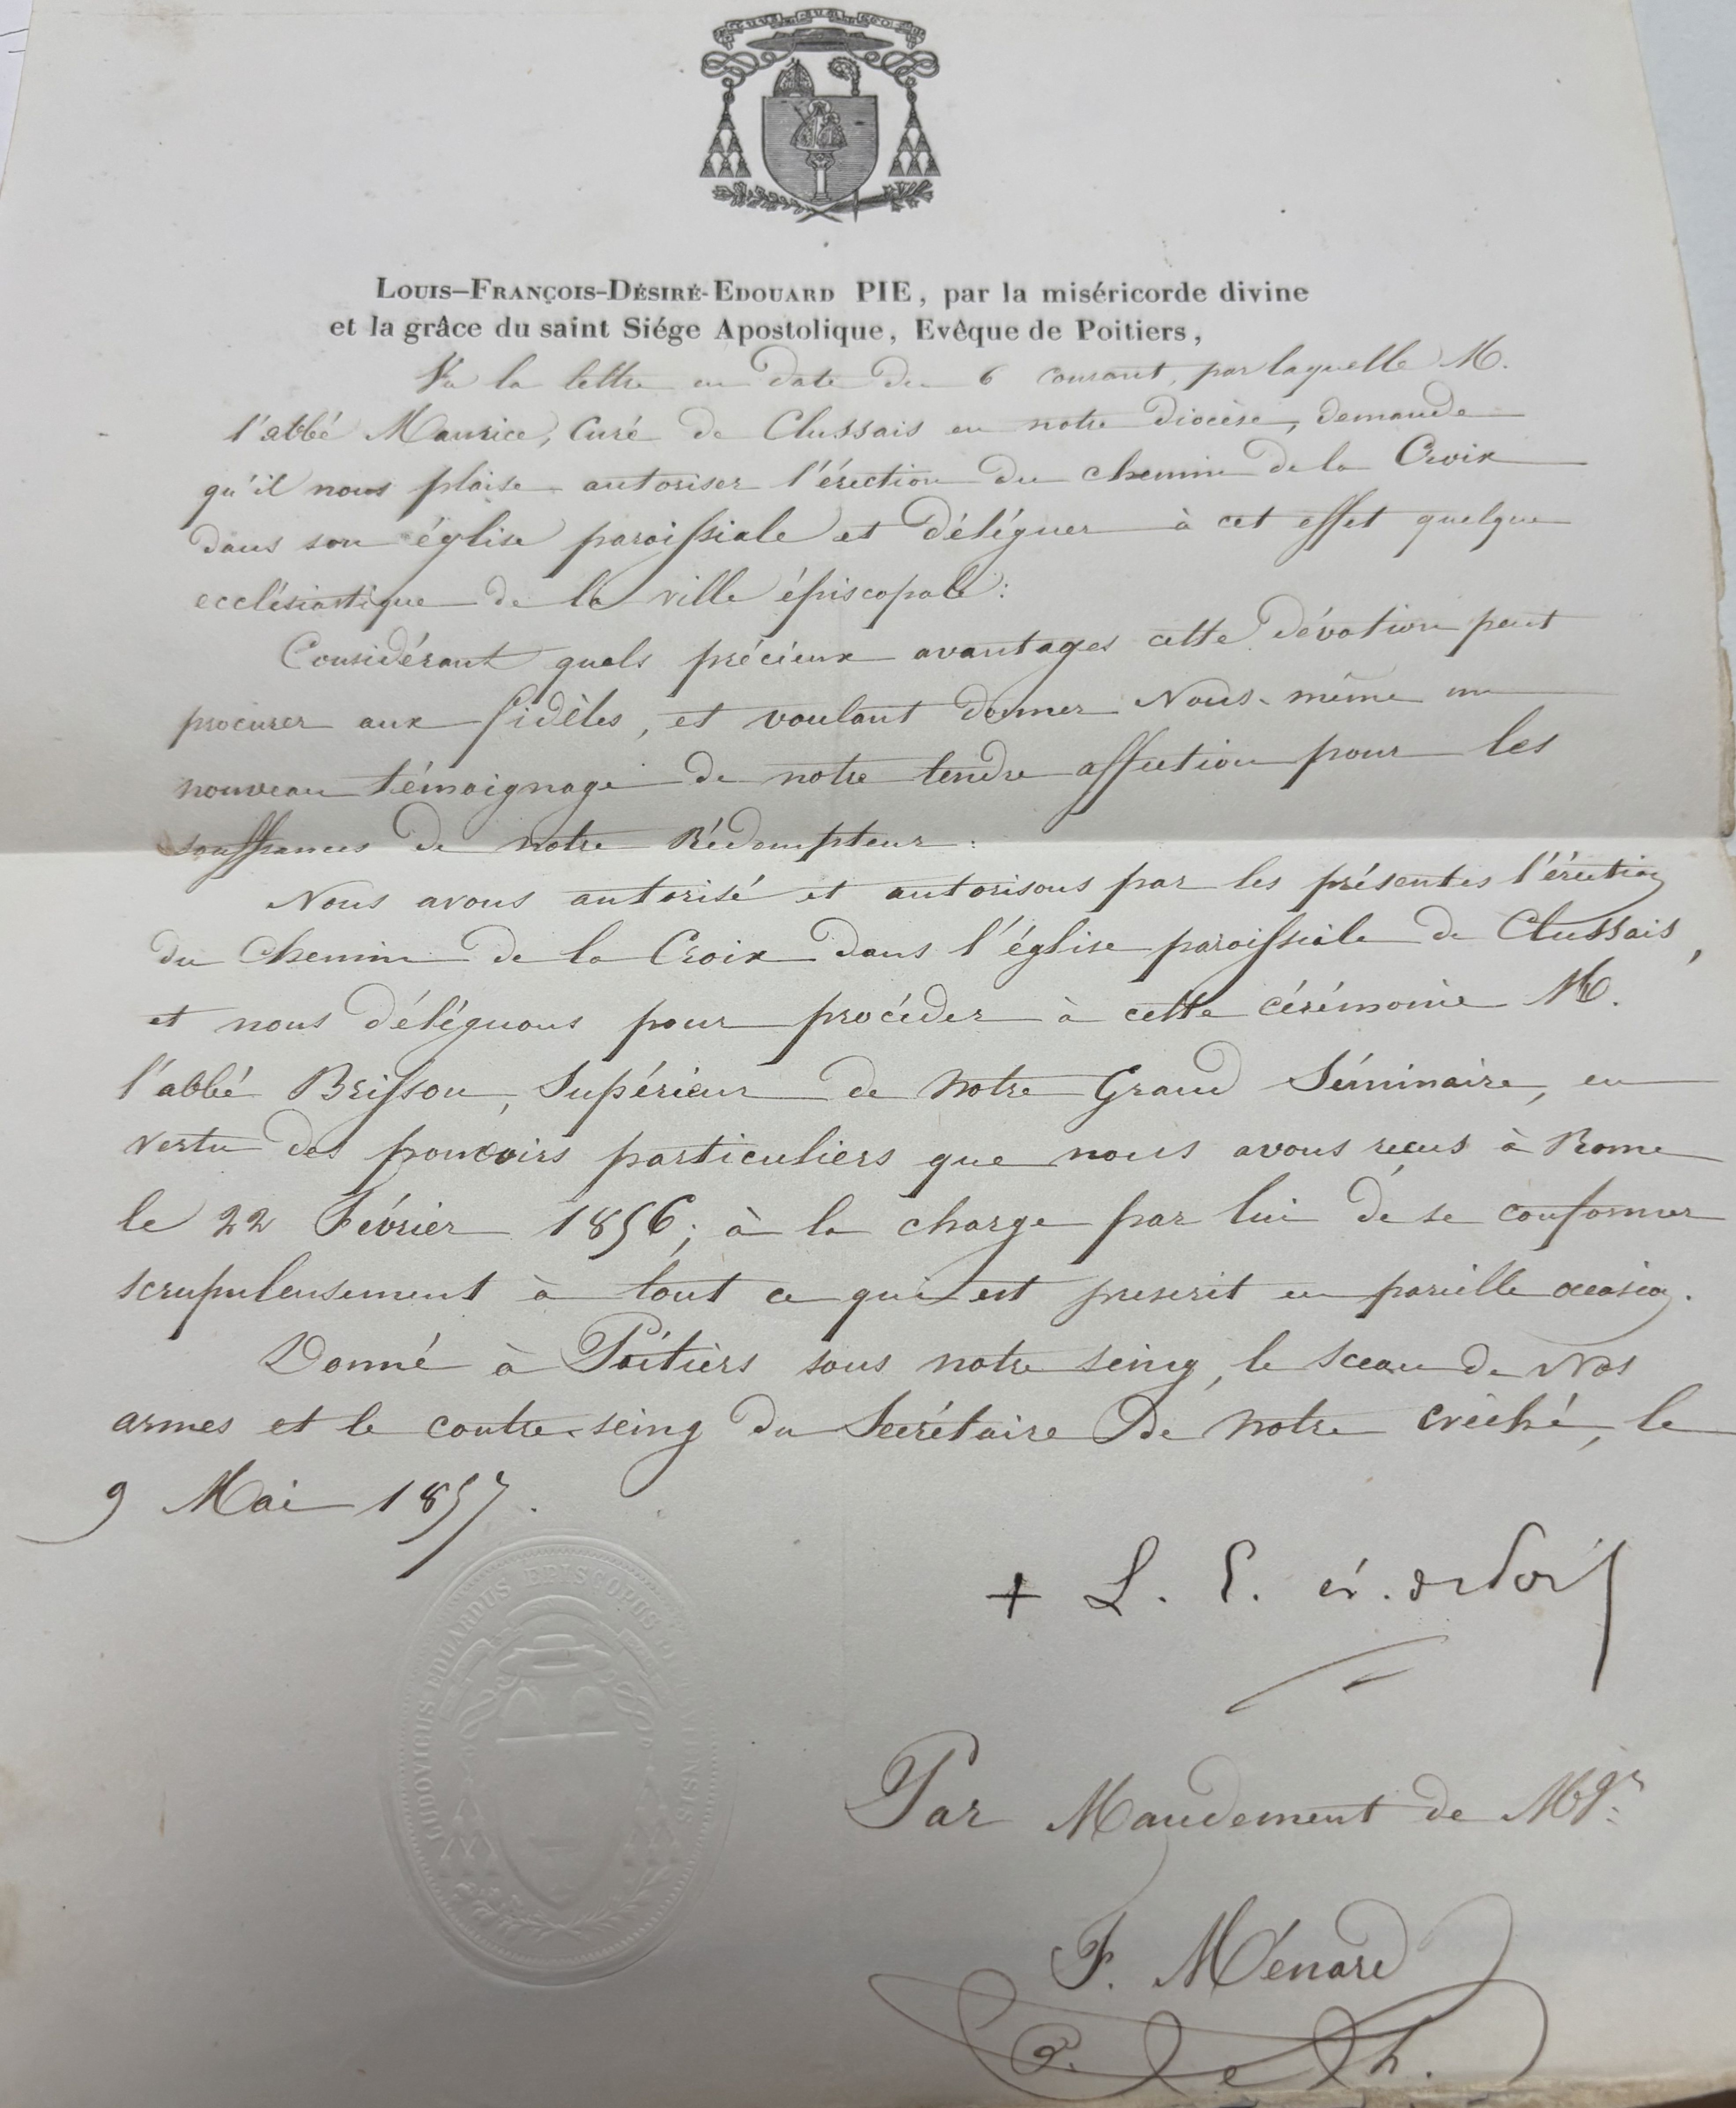 Louis-François-Désiré-Edouard PIE, par la miséricorde divine
et la grâce du saint Siége Apostolique, Evêque de Poitiers,
Vu la lettre en date du 6 courant, par laquelle M.
l'abbé Maurice, Curé de Clussais en notre diocèse, demande
qu'il nous plaise autoriser l'érection du chemin de la Croix
dans son église paroissiale et déléguer à cet effet quelque
ecclésiastique de la ville épiscopale :
Considérant quels précieux avantages cette dévotion peut
procurer aux fidèles, et voulant donner Nous-même un
nouveau témoignage de notre tendre affection pour les
souffrances de notre Rédempteur :
Nous avons autorisé et autorisons par les présentes l'érection
du Chemin de la Croix dans l'église paroissiale de Clussais,
et nous déléguons pour procéder à cette cérémonie M.
l'abbé Brisson, Supérieur de Notre Grand Séminaire, en
vertu des pouvoirs particuliers que nous avons reçus à Rome
le 22 Février 1856; à la charge par lui de se conformer
scrupuleusement à tout ce qui est prescrit en pareille occasion.
Donné à Poitiers sous notre seing, le sceau de Nos
armes et le contre-seing du Secrétaire De Notre évêché, le
9 Mai 1857.
+ L. E. év. de Poit
LUDOVICUS EDUARDUS EPISCOPUS PICTAVIENSIS
Par Mandement de Mgr.
F. Ménard